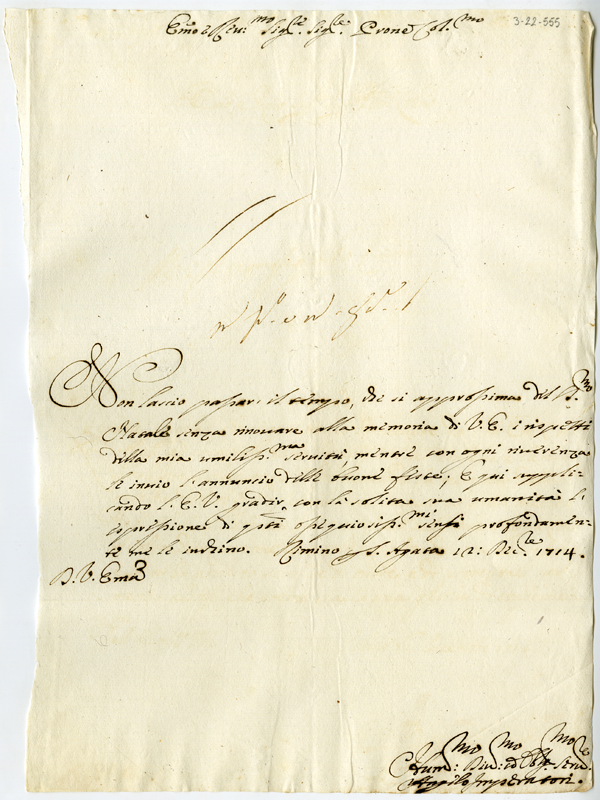 3-22-555
Emo e Reu:mo Sigre. Sigre. Prone Col.mo
Non lascio passare il tempo, che si approssima del S.mo
Natale senza rinouare alla memoria di V.E. i rispetti
della mia umiliss.ma seruitù, mentre con ogni riuerenza
le inuio l'annuncio delle buone feste; E qui suppli-
cando l'E.V. gradir con la solita sua umanità l'
espressione di qsti ossequiosiss.mi sensi profondamen-
te me le inchino. Rimino S. Agata 12: Dec.re 1714.
D. V. Emã
Hum:mo Diu:mo ed Obb.mo Seru.re